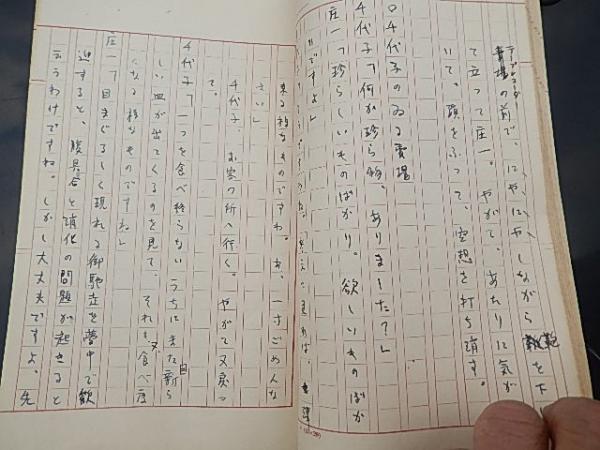 テープレコーダー
売場の前で、にやにやしながら 鞄を下
て立って庄一。やがて、あたりに気が
いて、頭をふって、空想を打ち消す。
○千代子のゐる売場
千代子「何か珍ら物、ありました？」
庄一「珍らしいものばかり。欲しいものばか
ですよ」
来る様なものですわ。あ、一寸ごめんな
さい」
千代子、お客の所へ行く。やがて又戻っ
て。
千代子「一つを食べ終らないうちにまた新ら
しい皿が出てくるのを見て、それも又食べ度
くなる様なものですね」
庄一「目まぐるしく現れる御馳走を夢中で歓
迎すると、腹具合と消化の問題が起きると
云うわけですね。しかし大丈夫ですよ。先